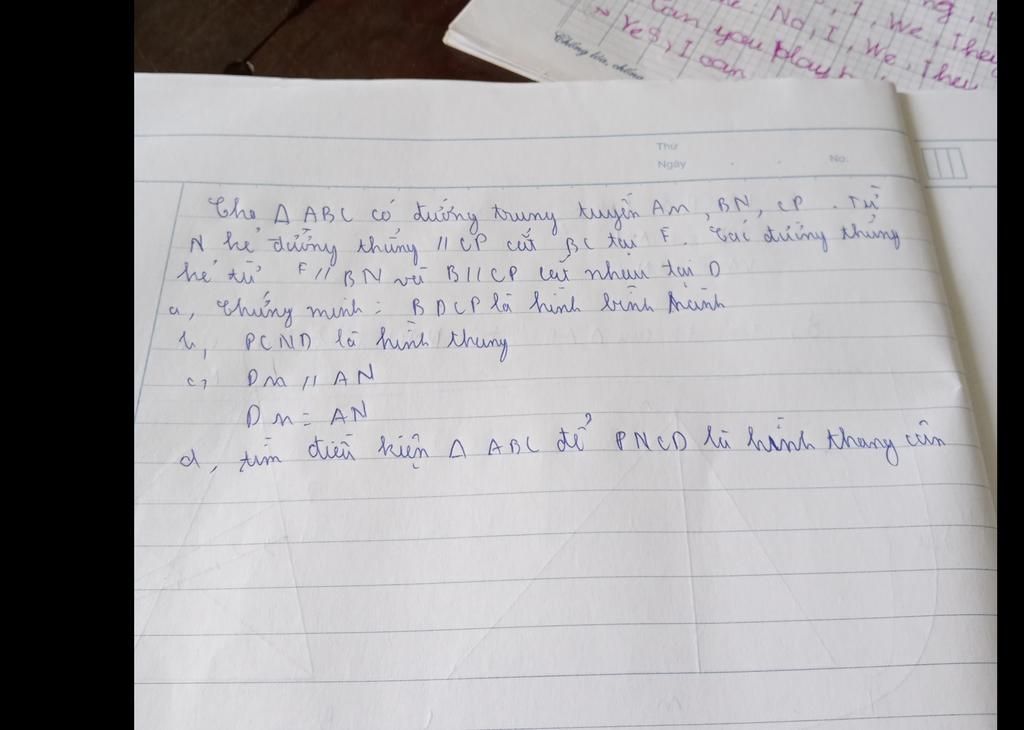 ng, t
te. No, I, We, They
Can you play
~ Yes, I can
Thứ
Ngày . . No.
Cho Δ ABC có đường trung tuyến AM, BN, CP. Từ
N kẻ đường thẳng // CP cắt BC tại F. Các đường thẳng
kẻ từ F // BN và B // CP cắt nhau tại D
a, Chứng minh: BDCP là hình bình hành
b, PCND là hình thang
c, DM // AN
DM = AN
d, tìm điều kiện Δ ABC để PNCD là hình thang cân